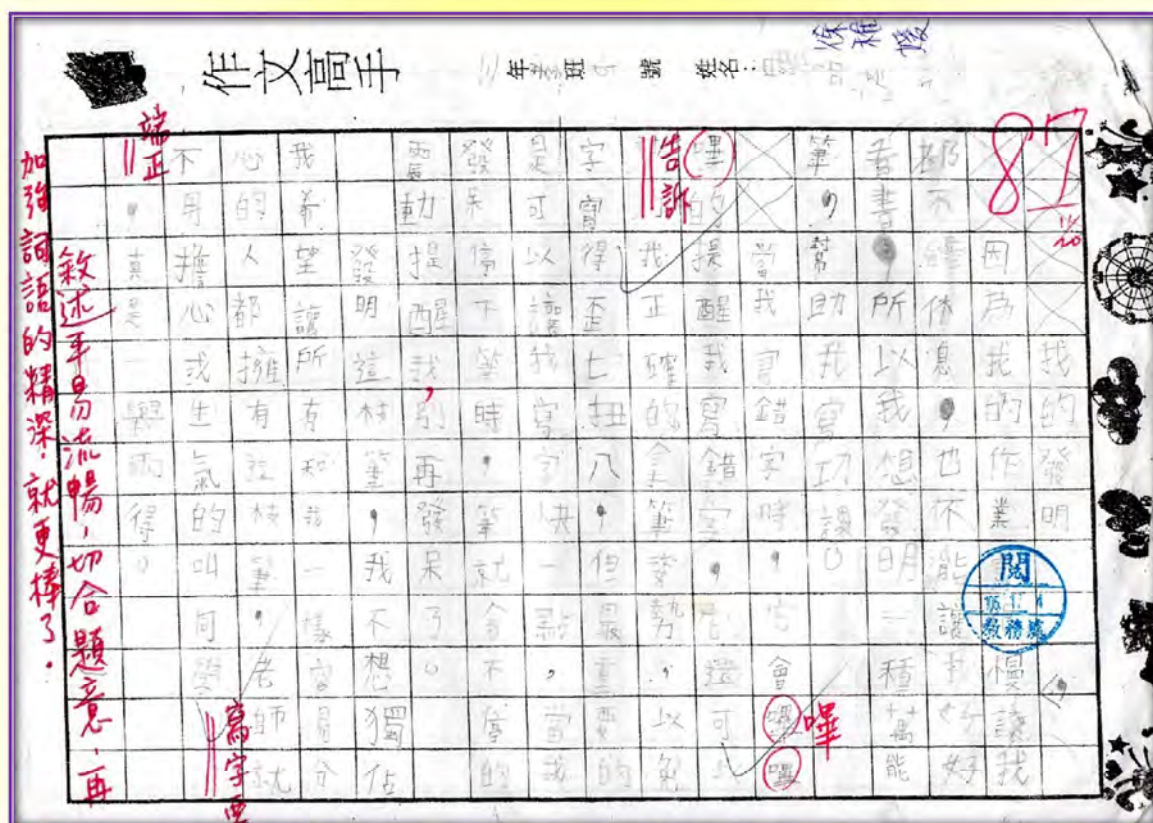 作文高手
年 班 號 姓名：
87
11/20
我的發明
因為我的作業 慢讓我
都不 休息，也不能讓我好好
看書，所以我想發明一種萬能
筆，幫助我寫功課。
當我寫錯字時，它會嗶嗶
嗶的提醒我寫錯字，它還可以
告訴我正確的拿筆姿勢，以免
字寫得歪七扭八，但最重要的
是可以讓我寫字快一點，當我
發呆停下筆時，筆就會不停的
震動提醒我，別再發呆了。
發明這枝筆，我不想獨佔
我希望讓所有和 樣容易分
心的人都擁有 枝筆，老師就
不用擔心或生氣的叫同學
寫字要
端正
，真是一舉兩得。
嗶
閱
教務處
敘述平易流暢，切合題意，再
加強詞語的精深，就更棒了。